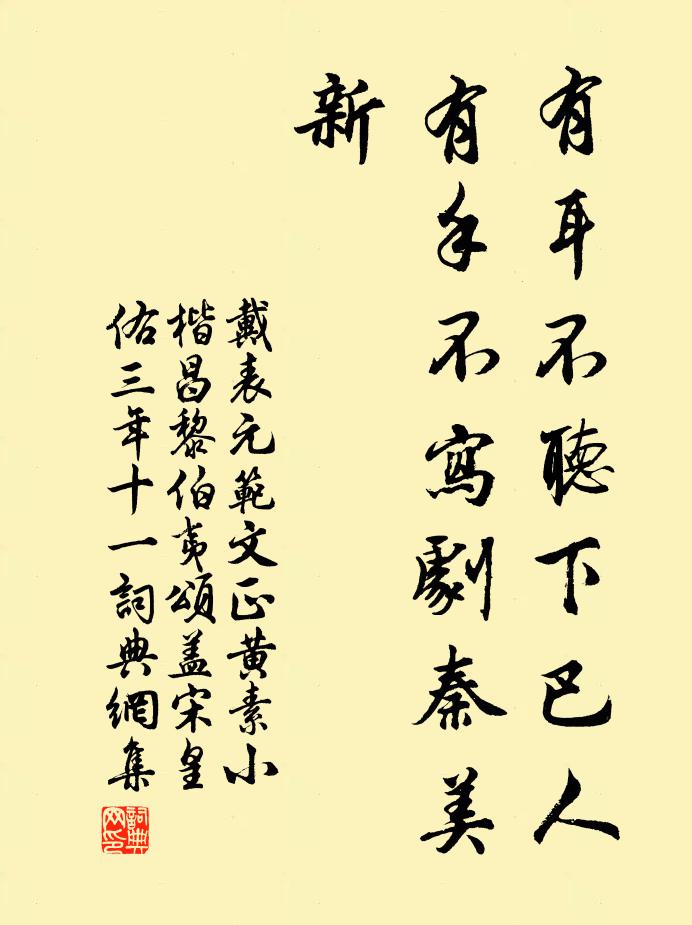 有耳不聽下巴人
有手不寫劇秦美
新
戴表元範文正黃素小
楷昌黎伯夷頌蓋宋皇
佑三年十一詞典網集
詞典
网印